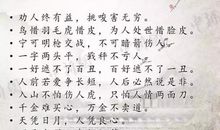 劝人终有益，挑唆害无穷。
鸟惜羽毛虎惜皮，为人处世惜脸皮。
宁可明枪交战，不可暗箭伤人
一字两头平，我秤不亏人。
一好遮不了百丑，百好遮不了一丑。
人前若爱争长短，人后必然说是非。
入山不怕伤人虎，只怕人情两面刀。
千金难买心，万金不卖道。
天凭日月，人凭良心。